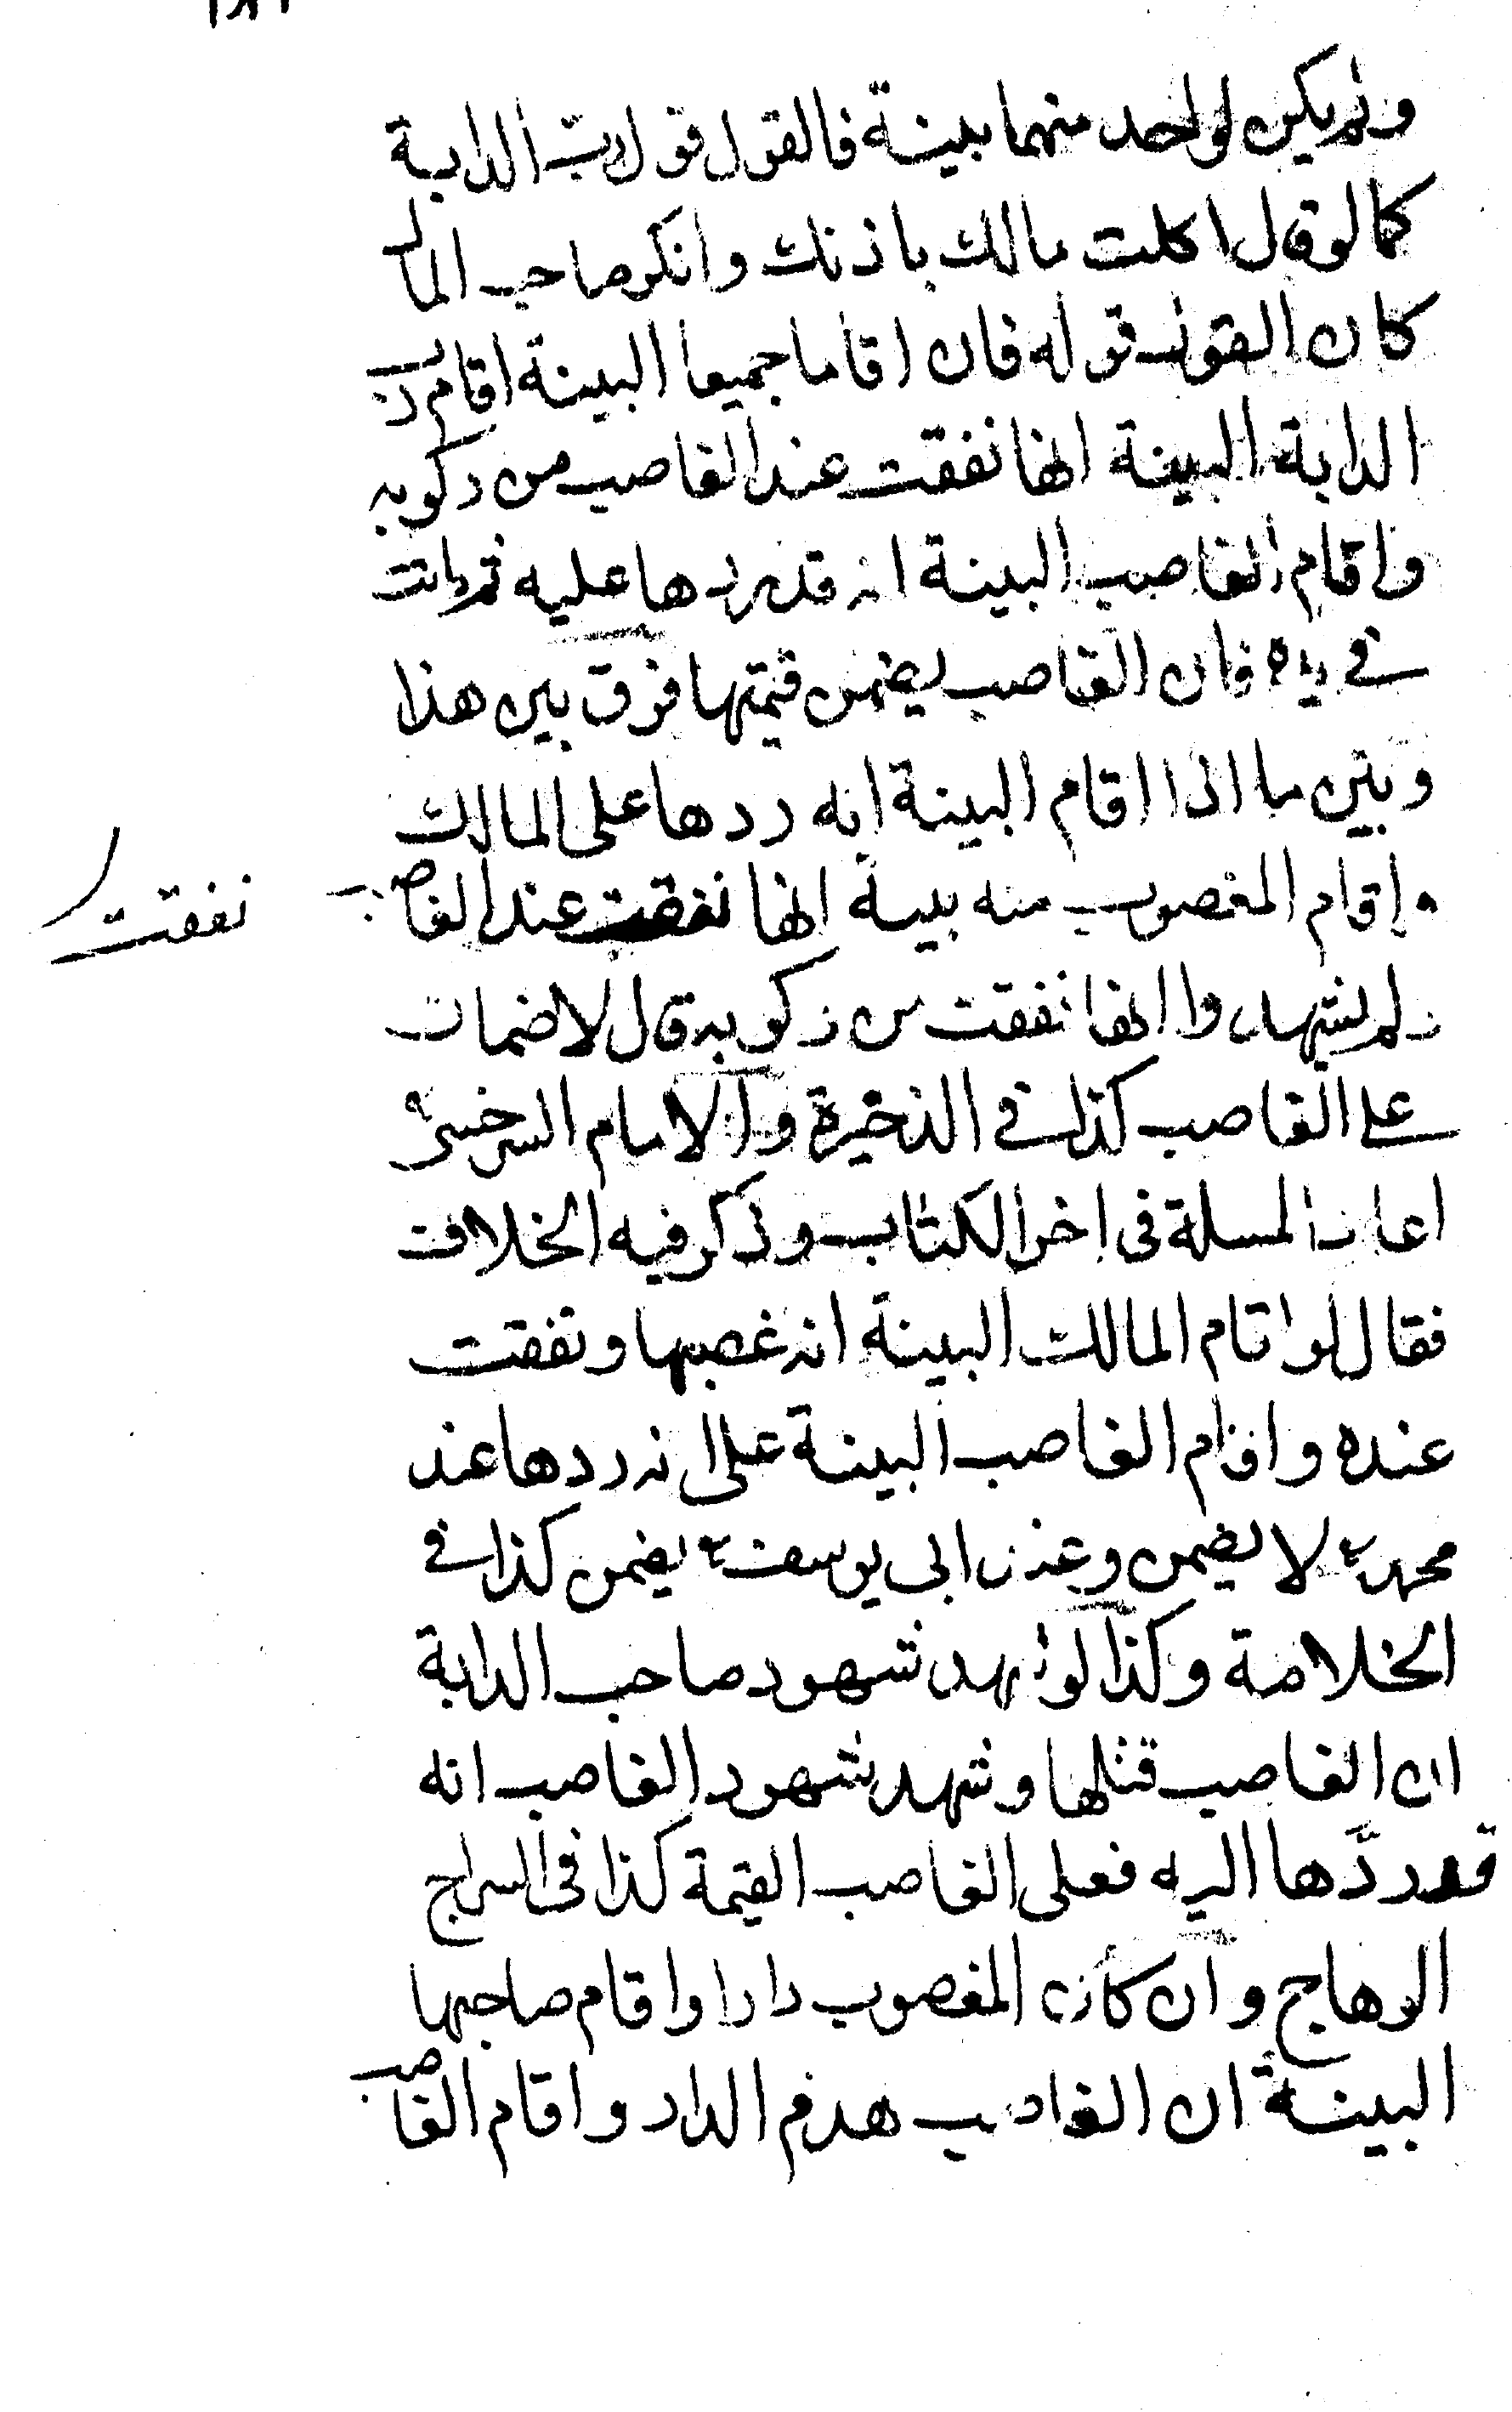 ولم يكن لواحد منهما بينة فالقول قول رب الدابة
كما لو قال اكلت مالك باذنك وانكر صاحب المال
كان القول قوله فان اقاما جميعا البينة اقام رب
الدابة البينة انها نفقت عند الغاصب من ركوبه
واقام الغاصب البينة انه قد ردها عليه ثم ماتت
في يده فان الغاصب يضمن قيمتها فرق بين هذا
وبين ما اذا اقام البينة انه ردها على المالك
واقام المغصوب منه بينة انها نفقت عند الغاصب
نفقت
ولم يشهدوا انها نفقت من ركوبه قال لا ضمان
على الغاصب كذا في الذخيرة والامام السرخسي
اعاد المسلة فى اخر الكتاب وذكر فيه الخلاف
فقال لو اقام المالك البينة انه غصبها ونفقت
عنده واقام الغاصب البينة على انه ردها عند
محمد رح لا يضمن وعند ابى يوسف رح يضمن كذا في
الخلاصة وكذا لو شهد شهود صاحب الدابة
ان الغاصب قتلها وشهد شهود الغاصب انه
قد ردَّها اليه فعلى الغاصب القيمة كذا فى السراج
الوهاج وان كان المغصوب دارا واقام صاحبها
البينة ان الغاصب هدم الدار واقام الغاصب